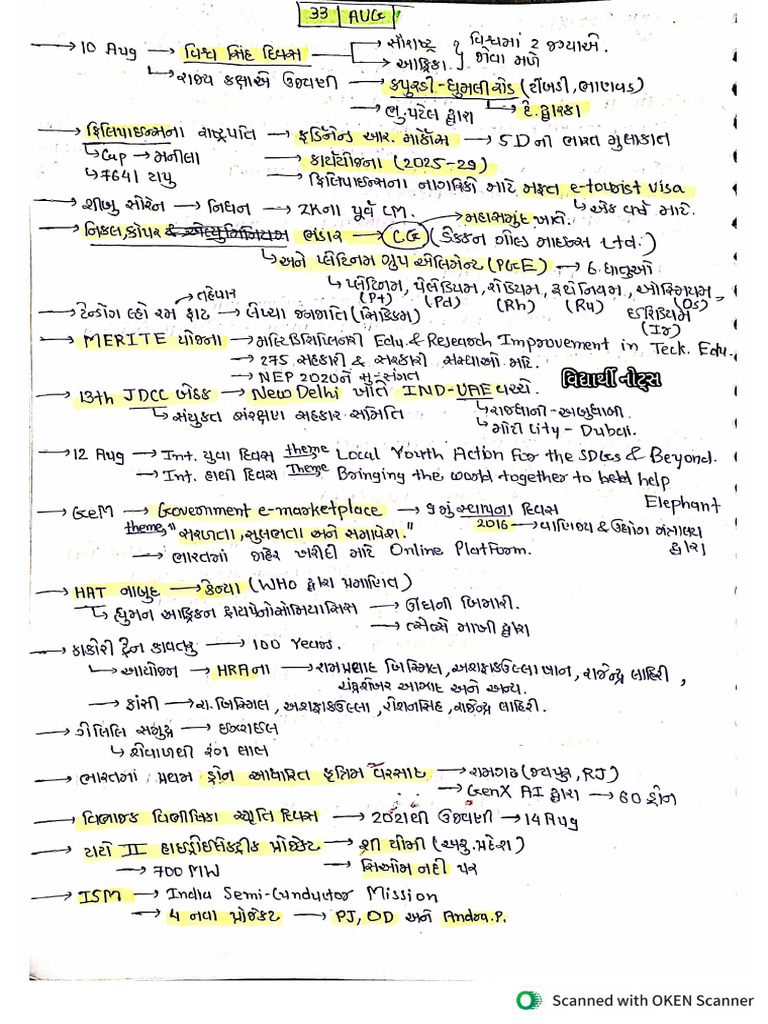 33 | AUG
→ 10 Aug → વિશ્વ સિંહ દિવસ → સૌરાષ્ટ્ર } વિશ્વમાં 2 જગ્યાએ
→ આફ્રિકા } જોવા મળે
↳ રાજ્ય કક્ષાએ ઉજવણી → કપુરડી-ઘુમલી રોડ (ટીંબડી, ભાણવડ)
→ ભુ.પટેલ દ્વારા ↳ દે. દ્વારકા
→ ફિલિપાઇન્સના રાષ્ટ્રપતિ → ફર્ડિનેન્ડ આર. માર્કોસ → 5 Dની ભારત મુલાકાત
↳ Cap → મનીલા → કાર્યયોજના (2025-29)
↳ 7641 ટાપુ → ફિલિપાઇન્સના નાગરિકો માટે મફત e-tourist visa
→ શીબુ સોરેન → નિધન → ZKના પૂર્વ CM. ↳ એક વર્ષ માટે.
→ મહાસમુંદ ખાતે.
→ નિકલ, કોપર & એલ્યુમિનિયમ ભંડાર → CG (ડેક્કન ગોલ્ડ માઇન્સ Ltd.)
↳ અને પ્લેટિનમ ગ્રુપ એલિમેન્ટ (PGE) → 6 ધાતુઓ
↳ પ્લેટિનમ, પેલેડિયમ, રોડિયમ, રૂથેનિયમ, ઓસ્મિયમ,
(Pt) (Pd) (Rh) (Ru) (Os)
→ તહેવાર
→ ટેન્ડોંગ લ્હો રમ ફાટ → લેપ્ચા જનજાતિ (સિક્કિમ) ઇરિડિયમ
(Ir)
→ MERITE યોજના → મલ્ટિડિસિપ્લિનરી Edu. & Research Improvement in Tech. Edu.
→ 275 સહકારી & સરકારી સંસ્થાઓ માટે.
→ NEP 2020ને સુસંગત
વિદ્યાર્થી નોટ્સ
→ 13th JDCC બેઠક → New Delhi ખાતે IND-UAE વચ્ચે.
↳ સંયુક્ત સંરક્ષણ સહકાર સમિતિ ↳ રાજધાની-અબુધાબી.
↳ મોટી City - Dubai.
→ 12 Aug → Int. યુવા દિવસ theme Local Youth Action For the SDGs & Beyond.
→ Int. હાથી દિવસ Theme Bringing the world together to help
Elephant
→ GeM → Government e-marketplace → 9 મું સ્થાપના દિવસ
theme "સરળતા, સુલભતા અને સમાવેશ." 2016 → વાણિજ્ય & ઉદ્યોગ મંત્રાલય
→ ભારતમાં જાહેર ખરીદી માટે Online Platform. દ્વારા
→ HAT નાબુદ → કેન્યા (WHO દ્વારા પ્રમાણિત)
↳ હ્યુમન આફ્રિકન ટ્રાયપેનોસોમિયાસિસ → ઊંઘની બિમારી.
→ ત્સેત્સે માખી દ્વારા
→ કાકોરી ટ્રેન કાવતરુ → 100 Years.
↳ આયોજન → HRAના → રામપ્રસાદ બિસ્મિલ, અશફાકઉલ્લા ખાન, રાજેન્દ્ર લાહિરી,
ચંદ્રશેખર આઝાદ અને અન્ય.
→ ફાંસી → રા. બિસ્મિલ, અશફાકઉલ્લા, રોશનસિંહ, રાજેન્દ્ર લાહિરી.
→ ગેલિલિ સમુદ્ર → ઇઝરાઈલ
↳ શેવાળથી રંગ લાલ
→ ભારતમાં પ્રથમ ડ્રોન આધારિત કૃત્રિમ વરસાદ → રામગઢ (જયપુર, RJ)
→ GenX AI દ્વારા → 60 ડ્રોન
→ વિભાજન વિભીષિકા સ્મૃતિ દિવસ → 2021થી ઉજવણી → 14 Aug
→ ટાટો II હાઇડ્રોઇલેક્ટ્રીક પ્રોજેક્ટ → શી યોમી (અરુ. પ્રદેશ)
→ 700 MW → સિઓમ નદી પર
→ ISM → India Semi-Conductor Mission
→ 4 નવા પ્રોજેક્ટ → PJ, OD અને Andra.P.
Scanned with OKEN Scanner